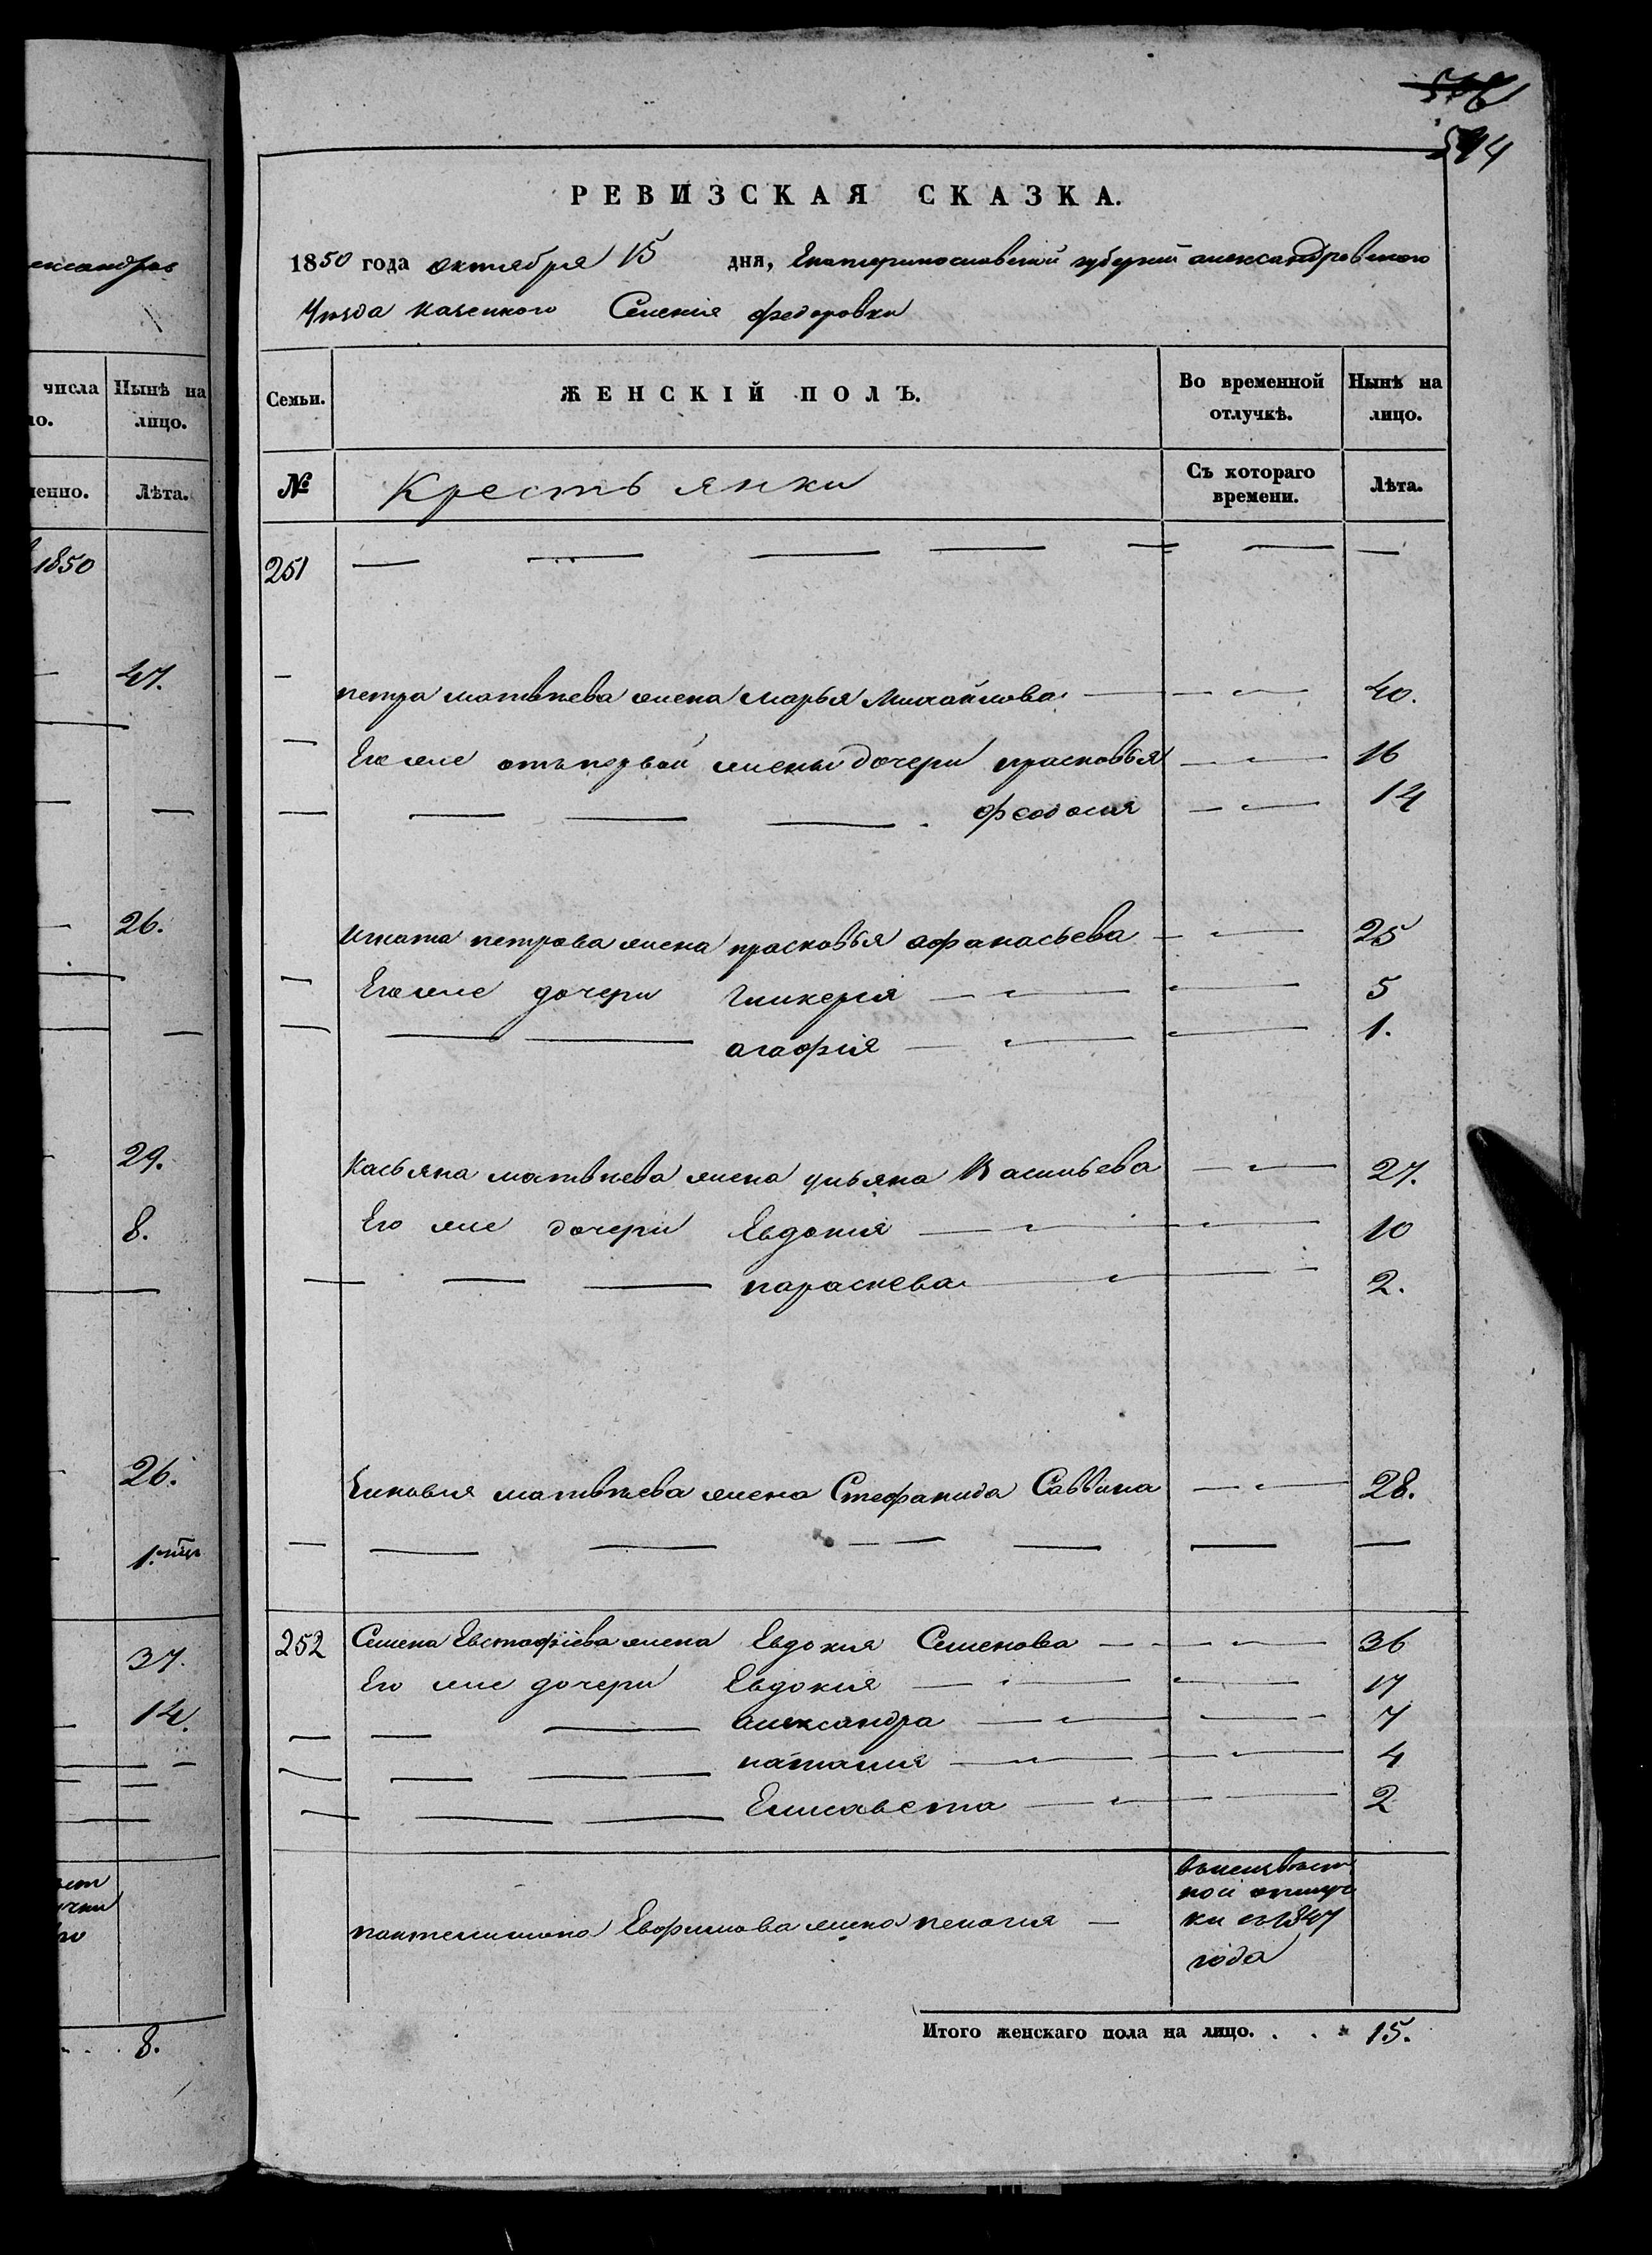 ександров
числа Нынѣ на
ло. лицо.
менно. Лѣта.
1850
47.
26.
29.
8.
26.
1.
37.
14.
8.
516
514
РЕВИЗСКАЯ СКАЗКА.
1850 года октября 15 дня, Екатеринославской губерній александровского
Уѣзда казенного Селенія федоровки
Семьи. ЖЕНСКІЙ ПОЛЪ. Во временной отлучкѣ. Нынѣ на лицо.
№ Крестьянки Съ котораго времени. Лѣта.
251
петра матвѣева жена марья Михайлова 40.
Его же отъ первой жены дочери прасковья 16
феодосия 14
игната петрова жена прасковья афанасьева 25
Его же дочери Гликерія 5
агафія 1.
Касьяна матвѣева жена ульяна Васильева 27.
Его же дочери Евдокия 10
параскева 2.
Зиновия матвѣева жена Стефанида Саввина 28.
252 Семена Евстафіева жена Евдокия Семенова 36
Его же дочери Евдокия 17
александра 7
наталия 4
Елисавета 2
пантелимона Евфимова жена пелагия
в неизвѣст
ной отлуч
ки съ 1847
года
Итого женскаго пола на лицо. . . . 15.